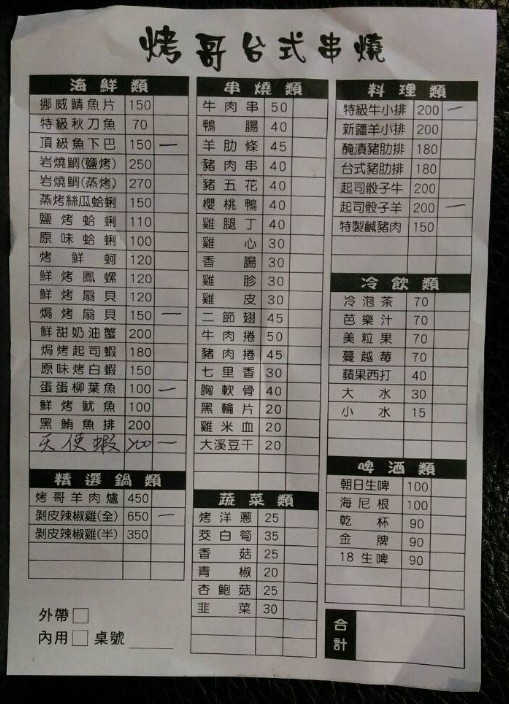 烤哥台式串燒
海鮮類
挪威鯖魚片 150
特級秋刀魚 70
頂級魚下巴 150 一
岩燒鯛(鹽烤) 250
岩燒鯛(蒸烤) 270
蒸烤絲瓜蛤蜊 150
鹽烤蛤蜊 110
原味蛤蜊 100
烤鮮蚵 120
鮮烤鳳螺 120
鮮烤扇貝 120
焗烤扇貝 150 一
鮮甜奶油蟹 200
焗烤起司蝦 180
原味烤白蝦 150
蛋蛋柳葉魚 100 一
鮮烤魷魚 100
黑鮪魚排 200
天使蝦 400 一
精選鍋類
烤哥羊肉爐 450
剝皮辣椒雞(全) 650 一
剝皮辣椒雞(半) 350
外帶
內用 桌號
串燒類
牛肉串 50
鴨腸 40
羊肋條 45
豬肉串 40
豬五花 40
櫻桃鴨 40
雞腿丁 40
雞心 30
香腸 30
雞胗 30
雞皮 30
二節翅 45
牛肉捲 50
豬肉捲 45
七里香 30
胸軟骨 40
黑輪片 20
雞米血 20
大溪豆干 20
蔬菜類
烤洋蔥 25
茭白筍 35
香菇 25
青椒 20
杏鮑菇 25
韭菜 30
料理類
特級牛小排 200 一
新疆羊小排 200
醃漬豬肋排 180
台式豬肋排 180
起司骰子牛 200
起司骰子羊 200 一
特製鹹豬肉 150
冷飲類
冷泡茶 70
芭樂汁 70
美粒果 70
蔓越莓 70
蘋果西打 40
大水 30
小水 15
啤酒類
朝日生啤 100
海尼根 100
乾杯 90
金牌 90
18生啤 90
合計